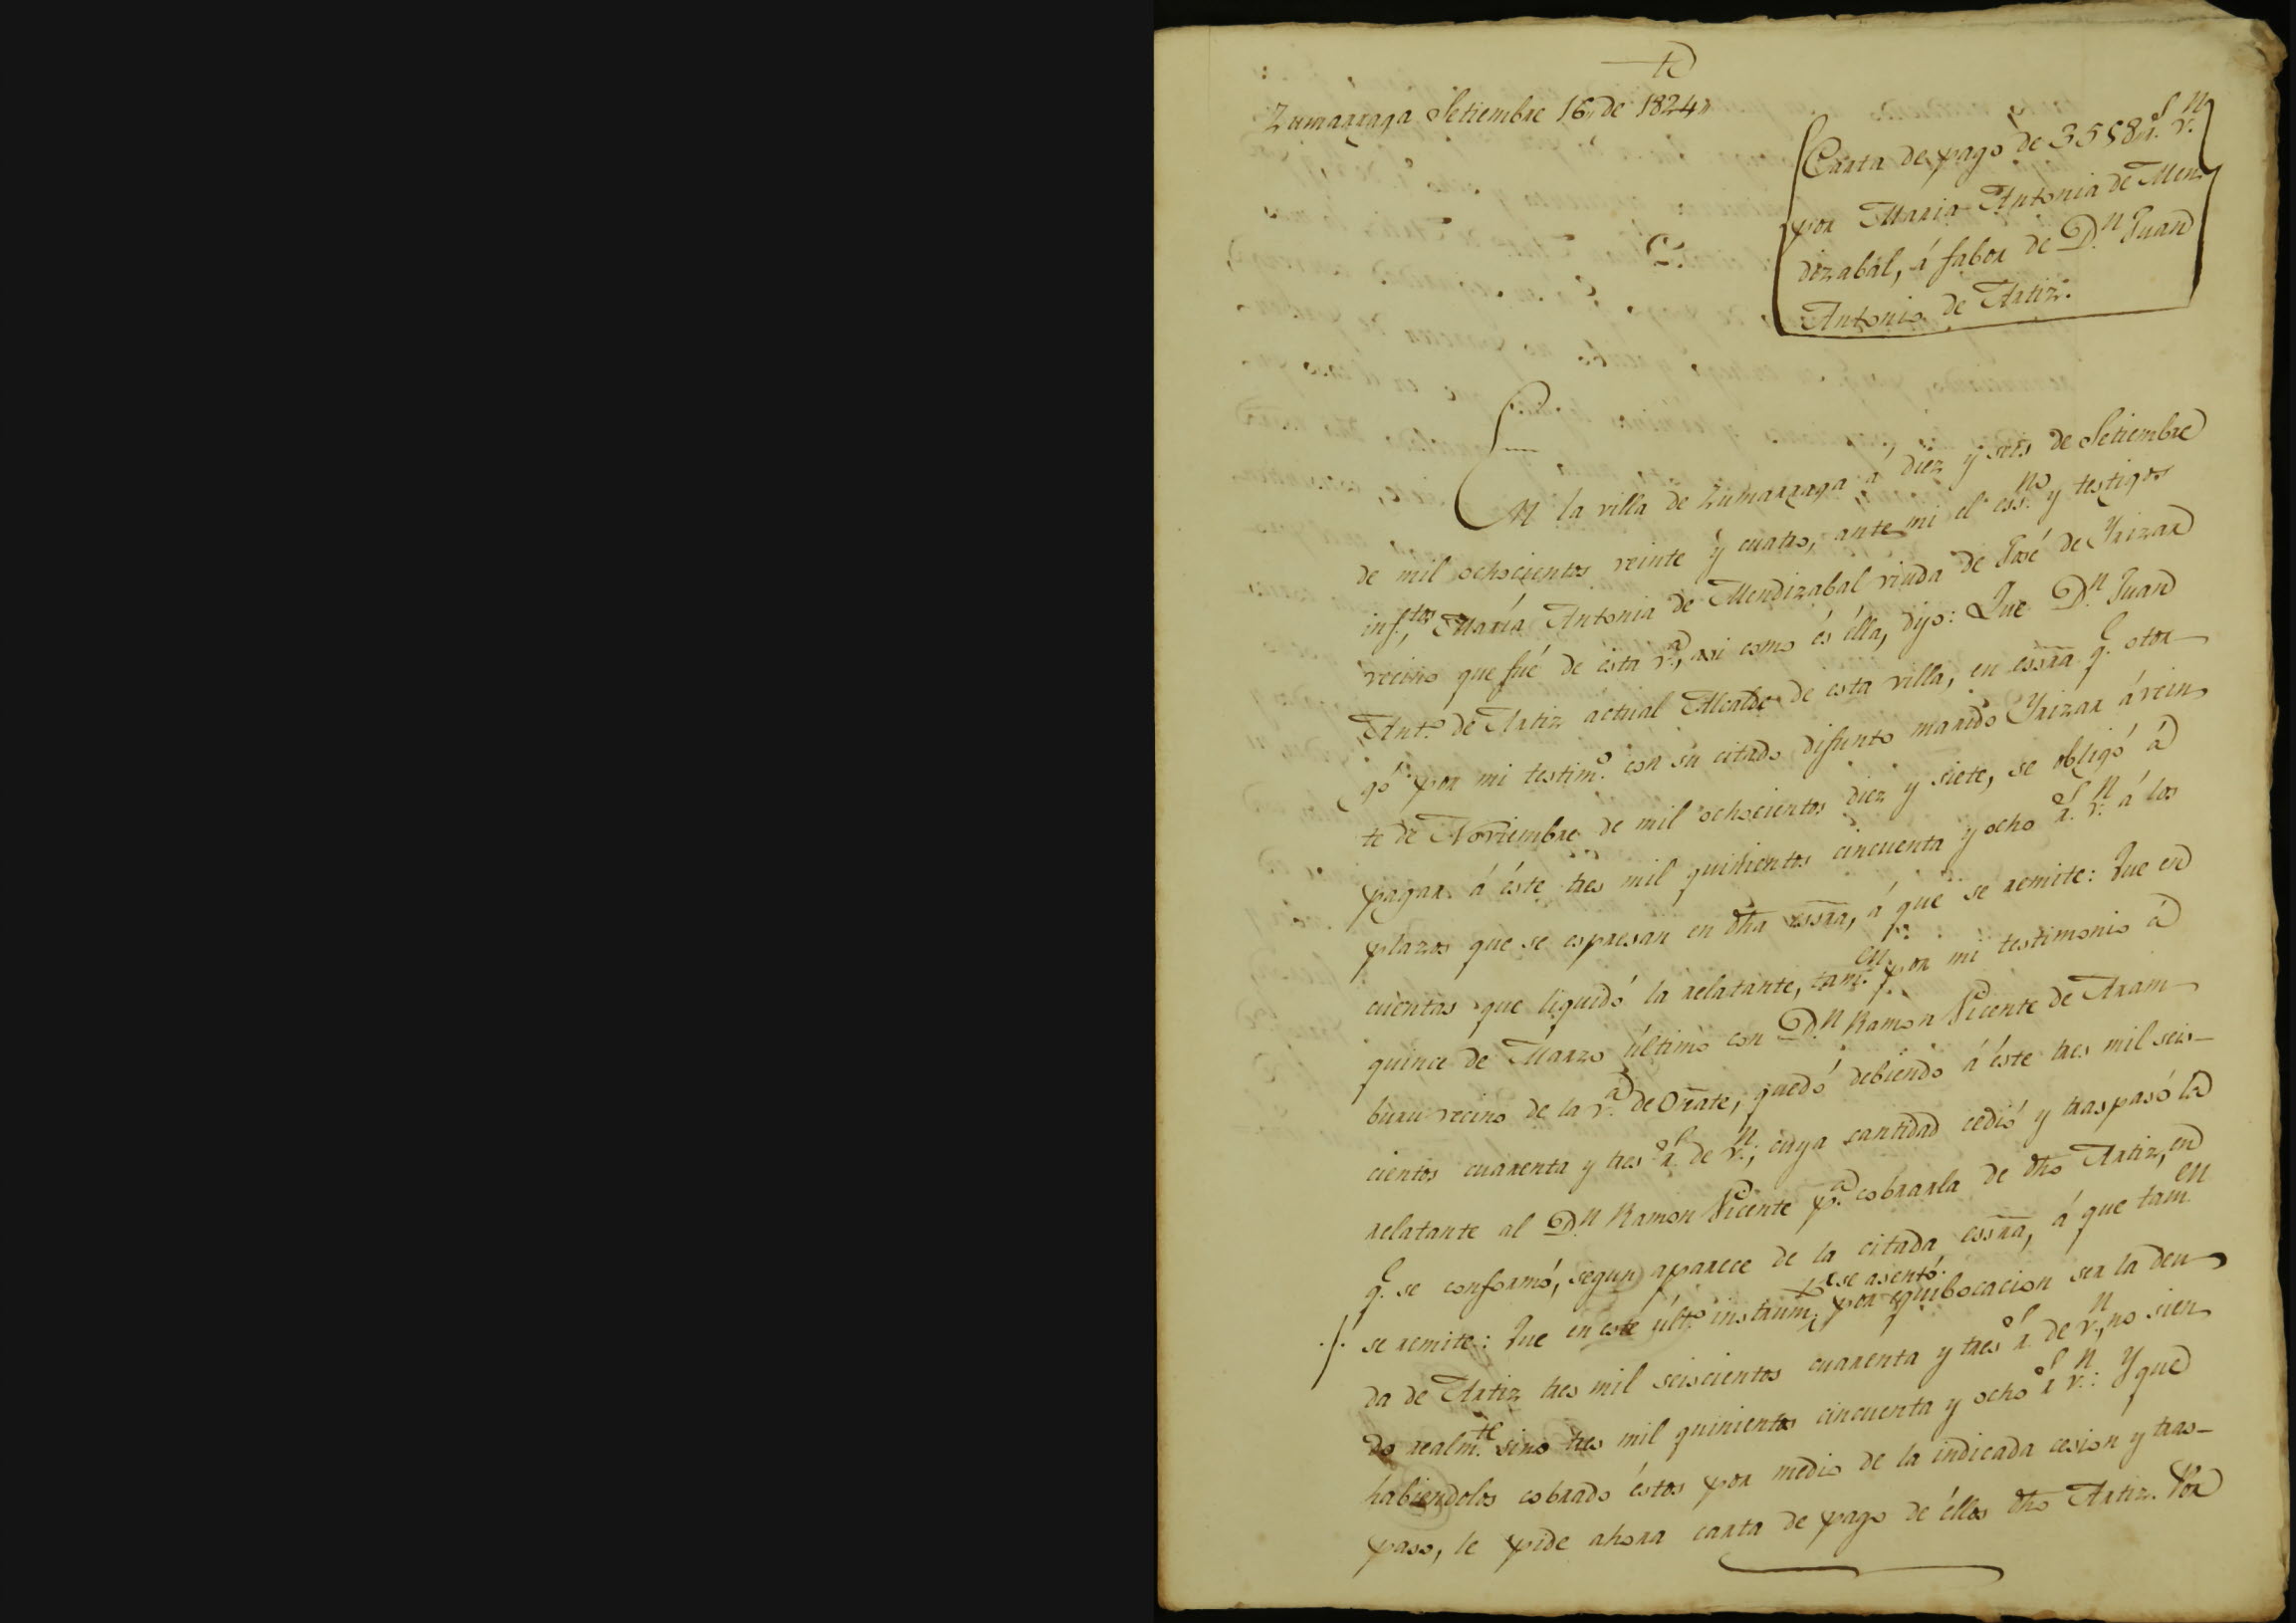 Zumarraga Setiembre 16, de 1824,,
Carta de pago de 3558 r.s v.n
por Maria Antonia de Men
dizabal, á fabor de D.n Juan
Antonio de Artiz.
C.
En la villa de Zumarraga á diez y seis de Setiembre
de mil ochocientos veinte y cuatro, ante mi el ess.no y testigos
inf.tos, María Antonia de Mendizabal viuda de José de Yrizar
vecino que fué de ésta v.a, asi como és élla, dijo: Que D.n Juan
Ant.o de Artiz actual Alcalde de esta villa, en essra q.e otor
gó por mi testim.o con su citado difunto marido Yrizar á vein
te de Noviembre de mil ochocientos diez y siete, se obligó á
pagar á éste tres mil quinientos cincuenta y ocho r.s v.n á los
plazos que se espresan en dha essra, á que se remite: Que en
cuentas que liquidó la relatante, tam.en por mi testimonio á
quince de Marzo último con D.n Ramon Vicente de Aram
buru vecino de la v.a de Oñate, quedó debiendo á éste tres mil seis-
cientos cuarenta y tres r.s de v.n; cuya cantidad cedió y traspasó la
relatante al D.n Ramon Vicente p.a cobrarla de dho Artiz, en
q.e se conformó, segun aparece de la citada essra, á que tam.en
se asentó
./. se remite: Que en este últ.o instrum.to por equibocacion ser la deu
da de Artiz tres mil seiscientos cuarenta y tres r.s de v.n, no sien
do realm.te sino tres mil quinientos cincuenta y ocho r.s v.n: Y que
habiendolos cobrado éstos por medio de la indicada cesion y tras-
paso, le pide ahora carta de pago de éllos dho Artiz. Por